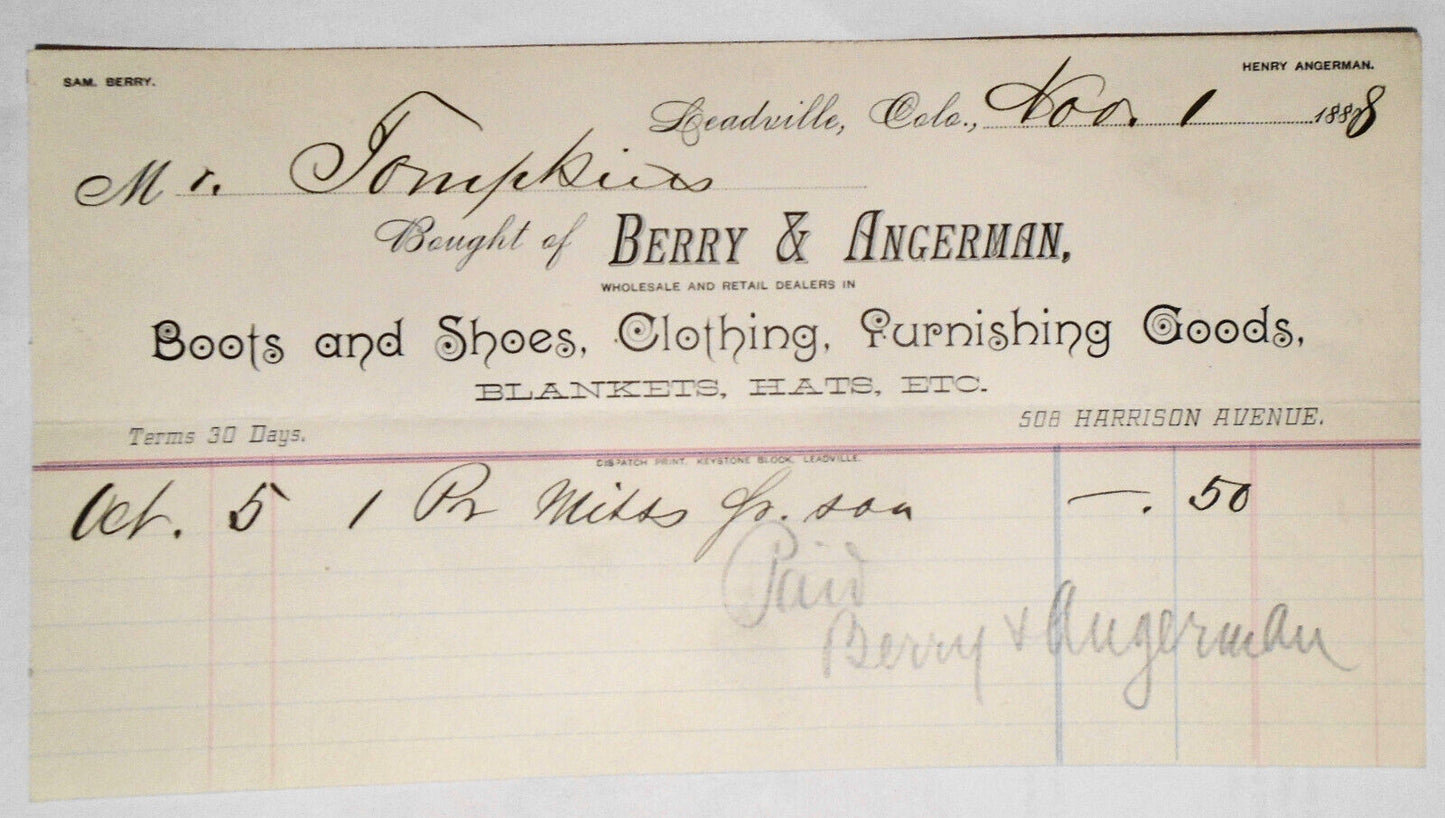 SAM. BERRY.
HENRY ANGERMAN.
Leadville, Colo., Nov. 1 1888
Mr. Tompkins
Bought of BERRY & ANGERMAN,
WHOLESALE AND RETAIL DEALERS IN
Boots and Shoes, Clothing, Furnishing Goods,
BLANKETS, HATS, ETC.
Terms 30 Days.
508 HARRISON AVENUE.
DISPATCH PRINT, KEYSTONE BLOCK, LEADVILLE.
Oct. 5 1 Pr Mitts Jr. son —. 50
Paid
Berry & Angerman